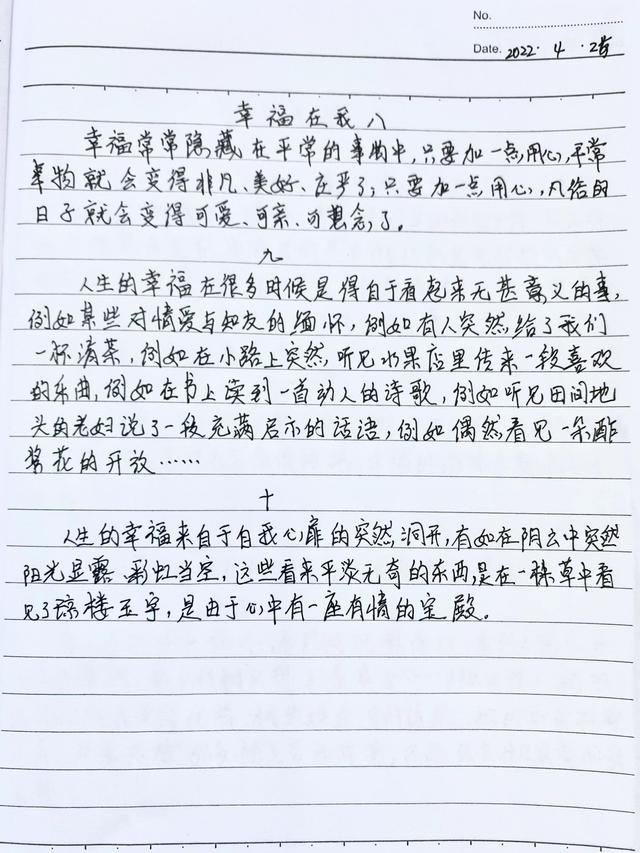 No.
Date. 2022. 4. 2号
幸福在我八
幸福常常隐藏在平常的事物中,只要加一点用心,平常
事物就会变得非凡、美好、庄严了;只要加一点用心,凡俗的
日子就会变得可爱、可亲、可想念了。
九
人生的幸福在很多时候是得自于看起来无甚意义的事,
例如某些对情爱与知友的缅怀,例如有人突然给了我们
一杯清茶,例如在小路上突然听见水果店里传来一段喜欢
的乐曲,例如在书上读到一首动人的诗歌,例如听见田间地
头的老妇说了一段充满启示的话语,例如偶然看见一朵酢
浆花的开放……
十
人生的幸福来自于自我心扉的突然洞开,有如在阴云中突然
阳光显露、彩虹当空,这些看来平淡无奇的东西,是在一株草中看
见了琼楼玉宇,是由于心中有一座有情的宝殿。